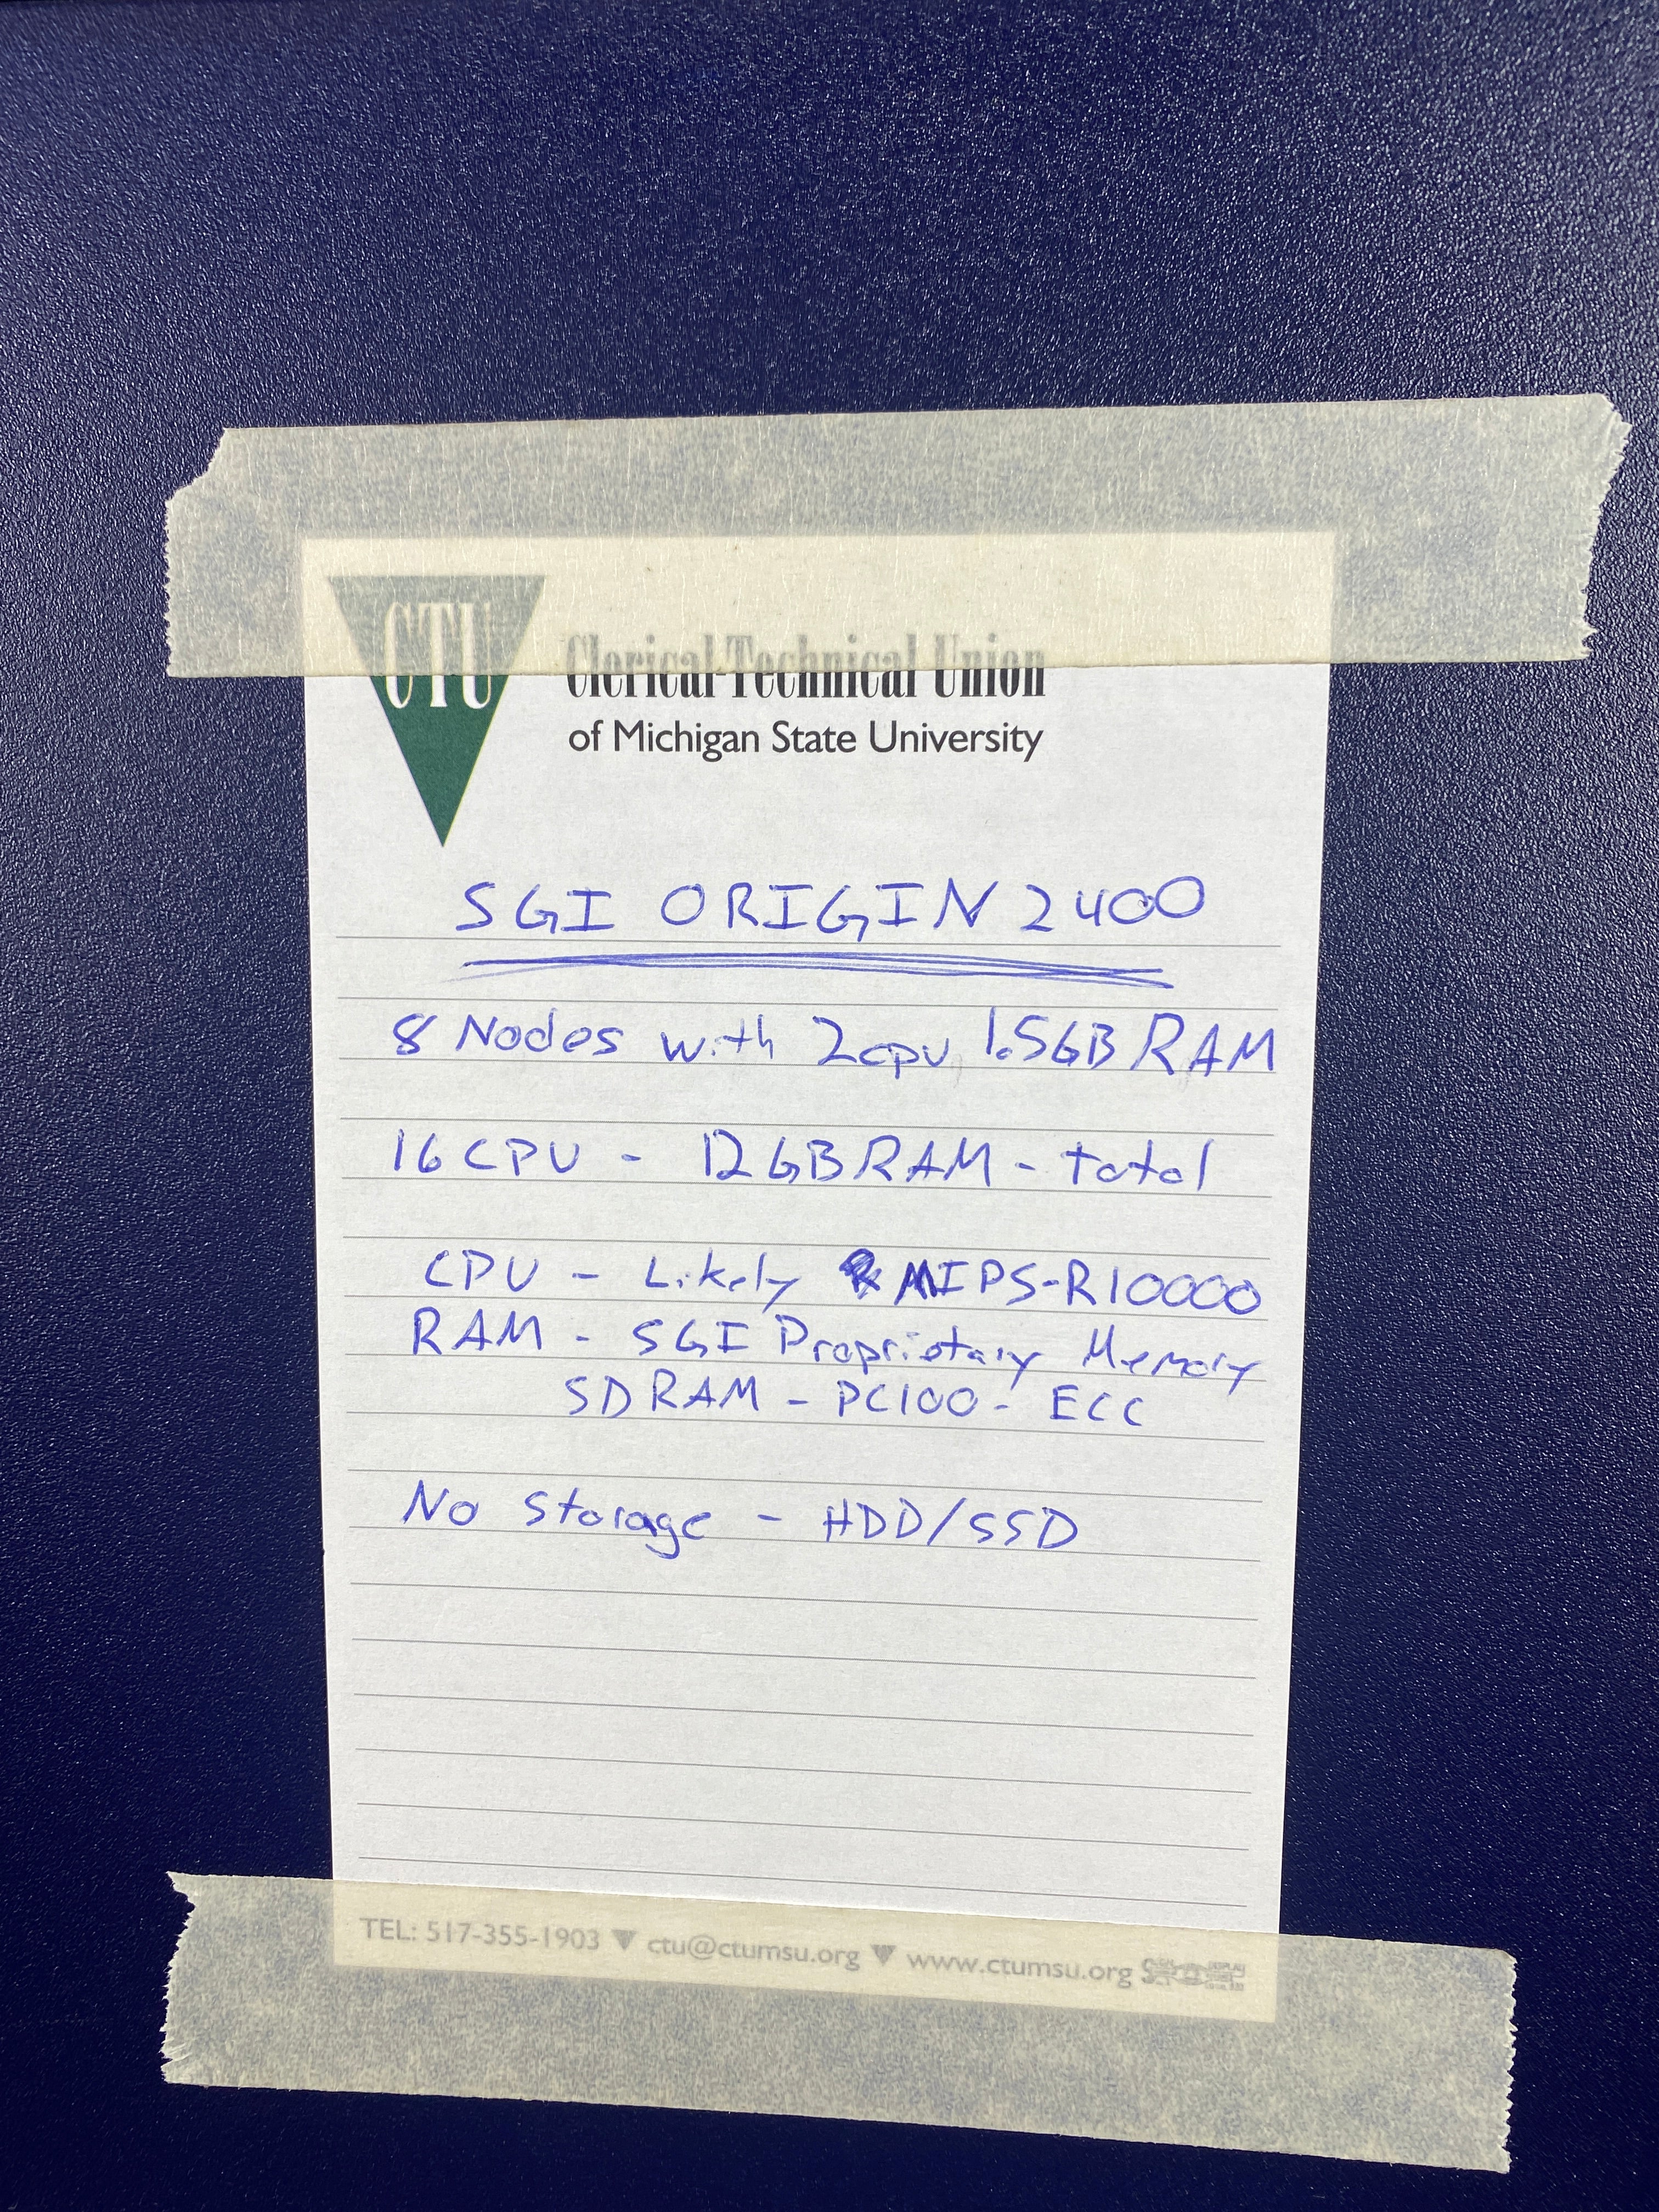 CTU
Clerical-Technical Union
of Michigan State University
SGI ORIGIN 2400
8 Nodes with 2cpu 1.5GB RAM
16 CPU - 12GB RAM - total
CPU - Likely MIPS-R10000
RAM - SGI Proprietary Memory
SDRAM - PC100 - ECC
No Storage - HDD/SSD
TEL: 517-355-1903 ▼ ctu@ctumsu.org ▼ www.ctumsu.org